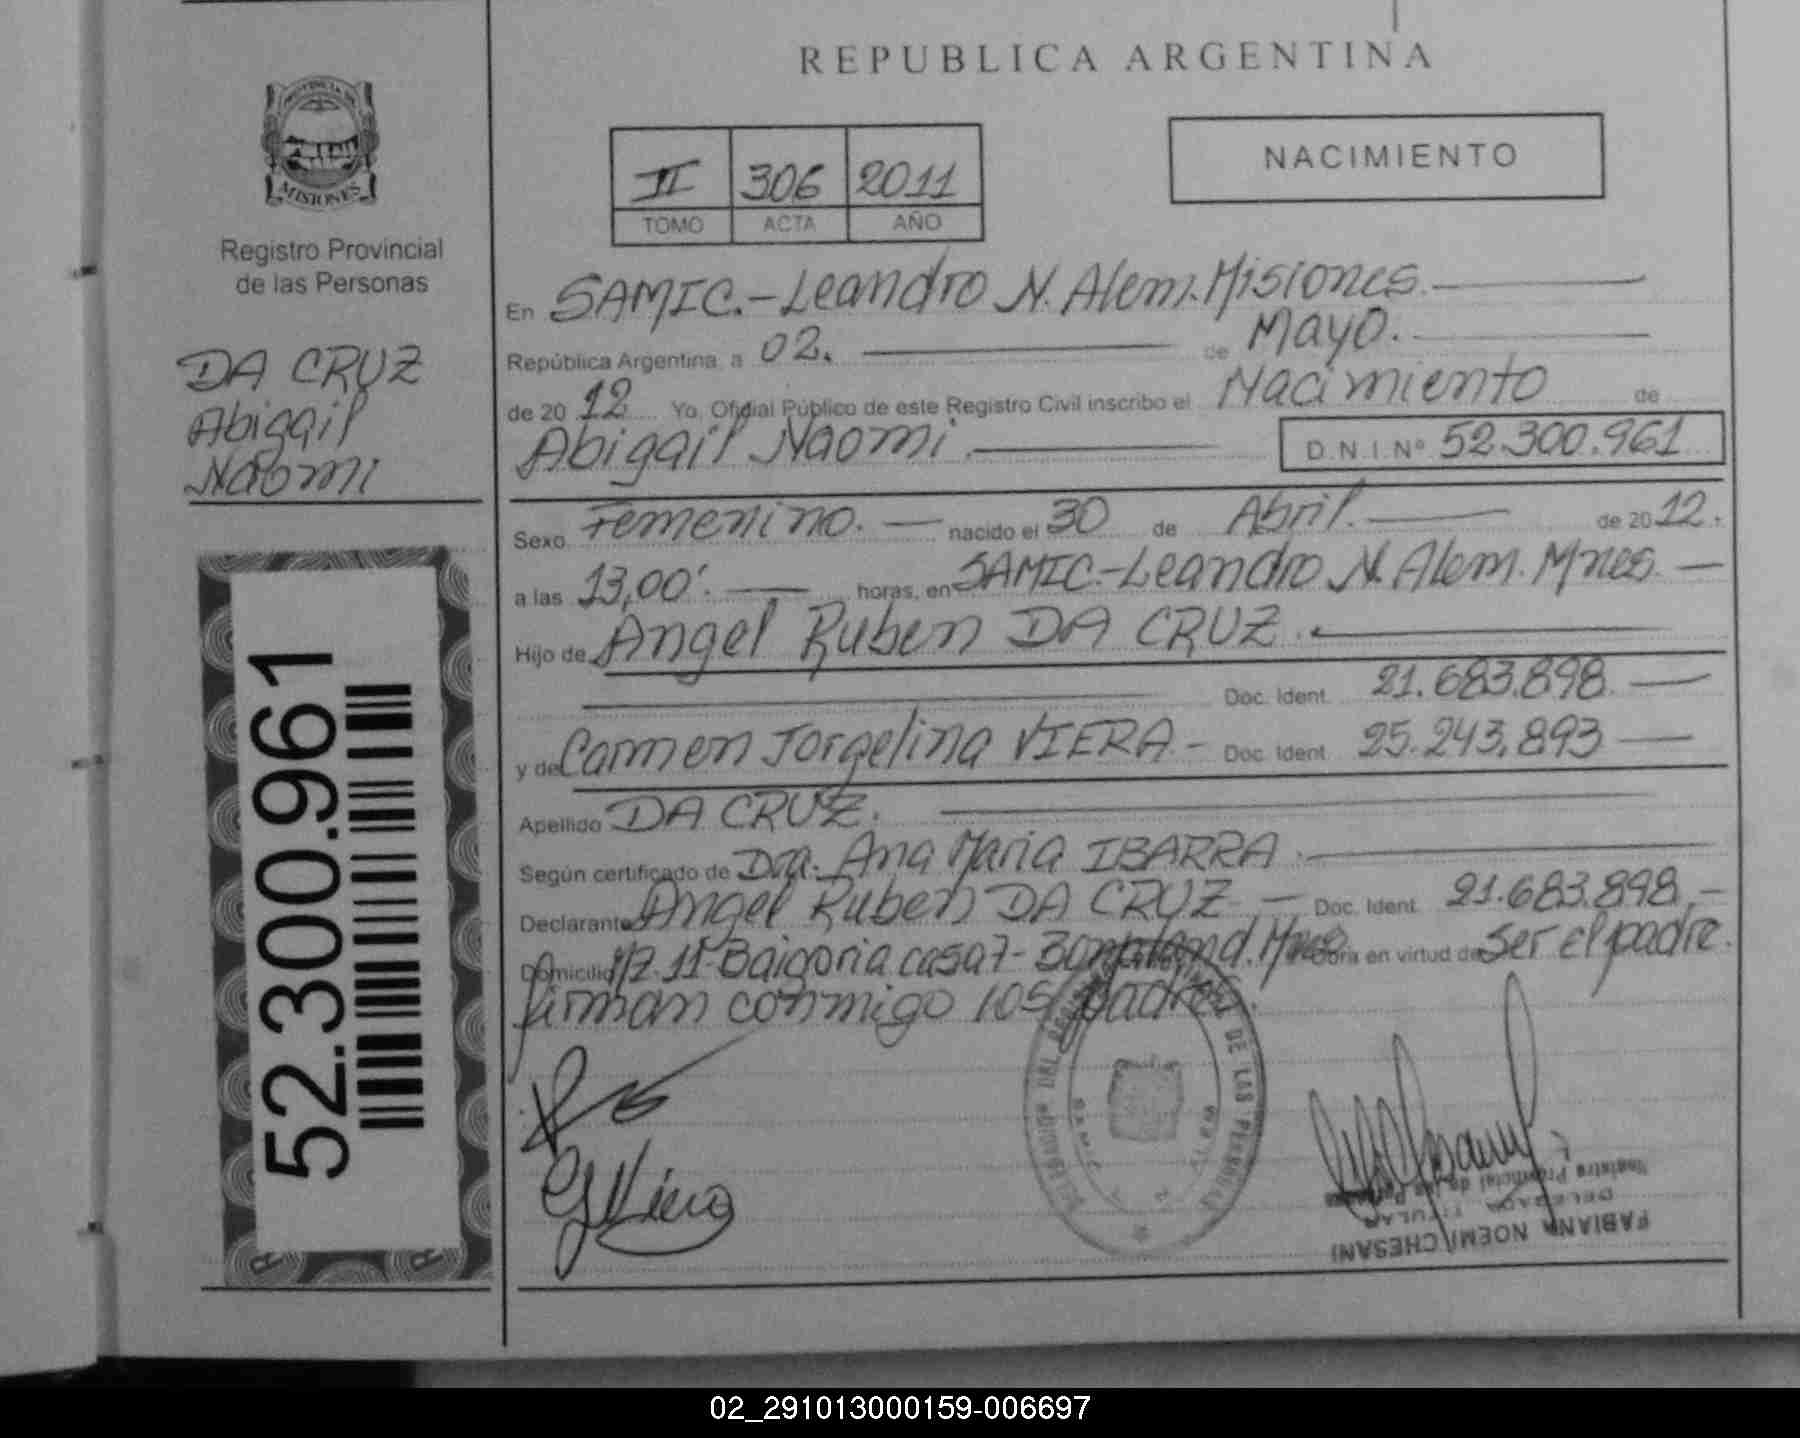 REPUBLICA ARGENTINA
NACIMIENTO
II 306 2011
TOMO ACTA AÑO
MISIONES
Registro Provincial
de las Personas
DA CRUZ
Abigail
Naomi
52.300.961
En SAMIC.-Leandro N. Alem. Misiones.
República Argentina, a 02. de Mayo.
de 2012 Yo, Oficial Público de este Registro Civil inscribo el Nacimiento de
Abigail Naomi. D.N.I.Nº 52.300.961
Sexo Femenino. nacido el 30 de Abril. de 2012.
a las 13,00'. horas, en SAMIC.-Leandro N. Alem. Mnes.
Hijo de Angel Ruben DA CRUZ.
Doc. Ident. 21.683.898.
y de Carmen Jorgelina VIERA.- Doc. Ident. 25.243.893
Apellido DA CRUZ.
Según certificado de Dra. Ana Maria IBARRA.
Declarante Angel Ruben DA CRUZ.- Doc. Ident. 21.683.898.-
Domicilio Bonpland. Mnes en virtud de Ser el padre.
firman conmigo los padres.
DEL DE LAS PERSONAS
FABIANA NOEMI CHESANI
DELEGADA TITULAR
Registro Provincial de las Personas
02_291013000159-006697